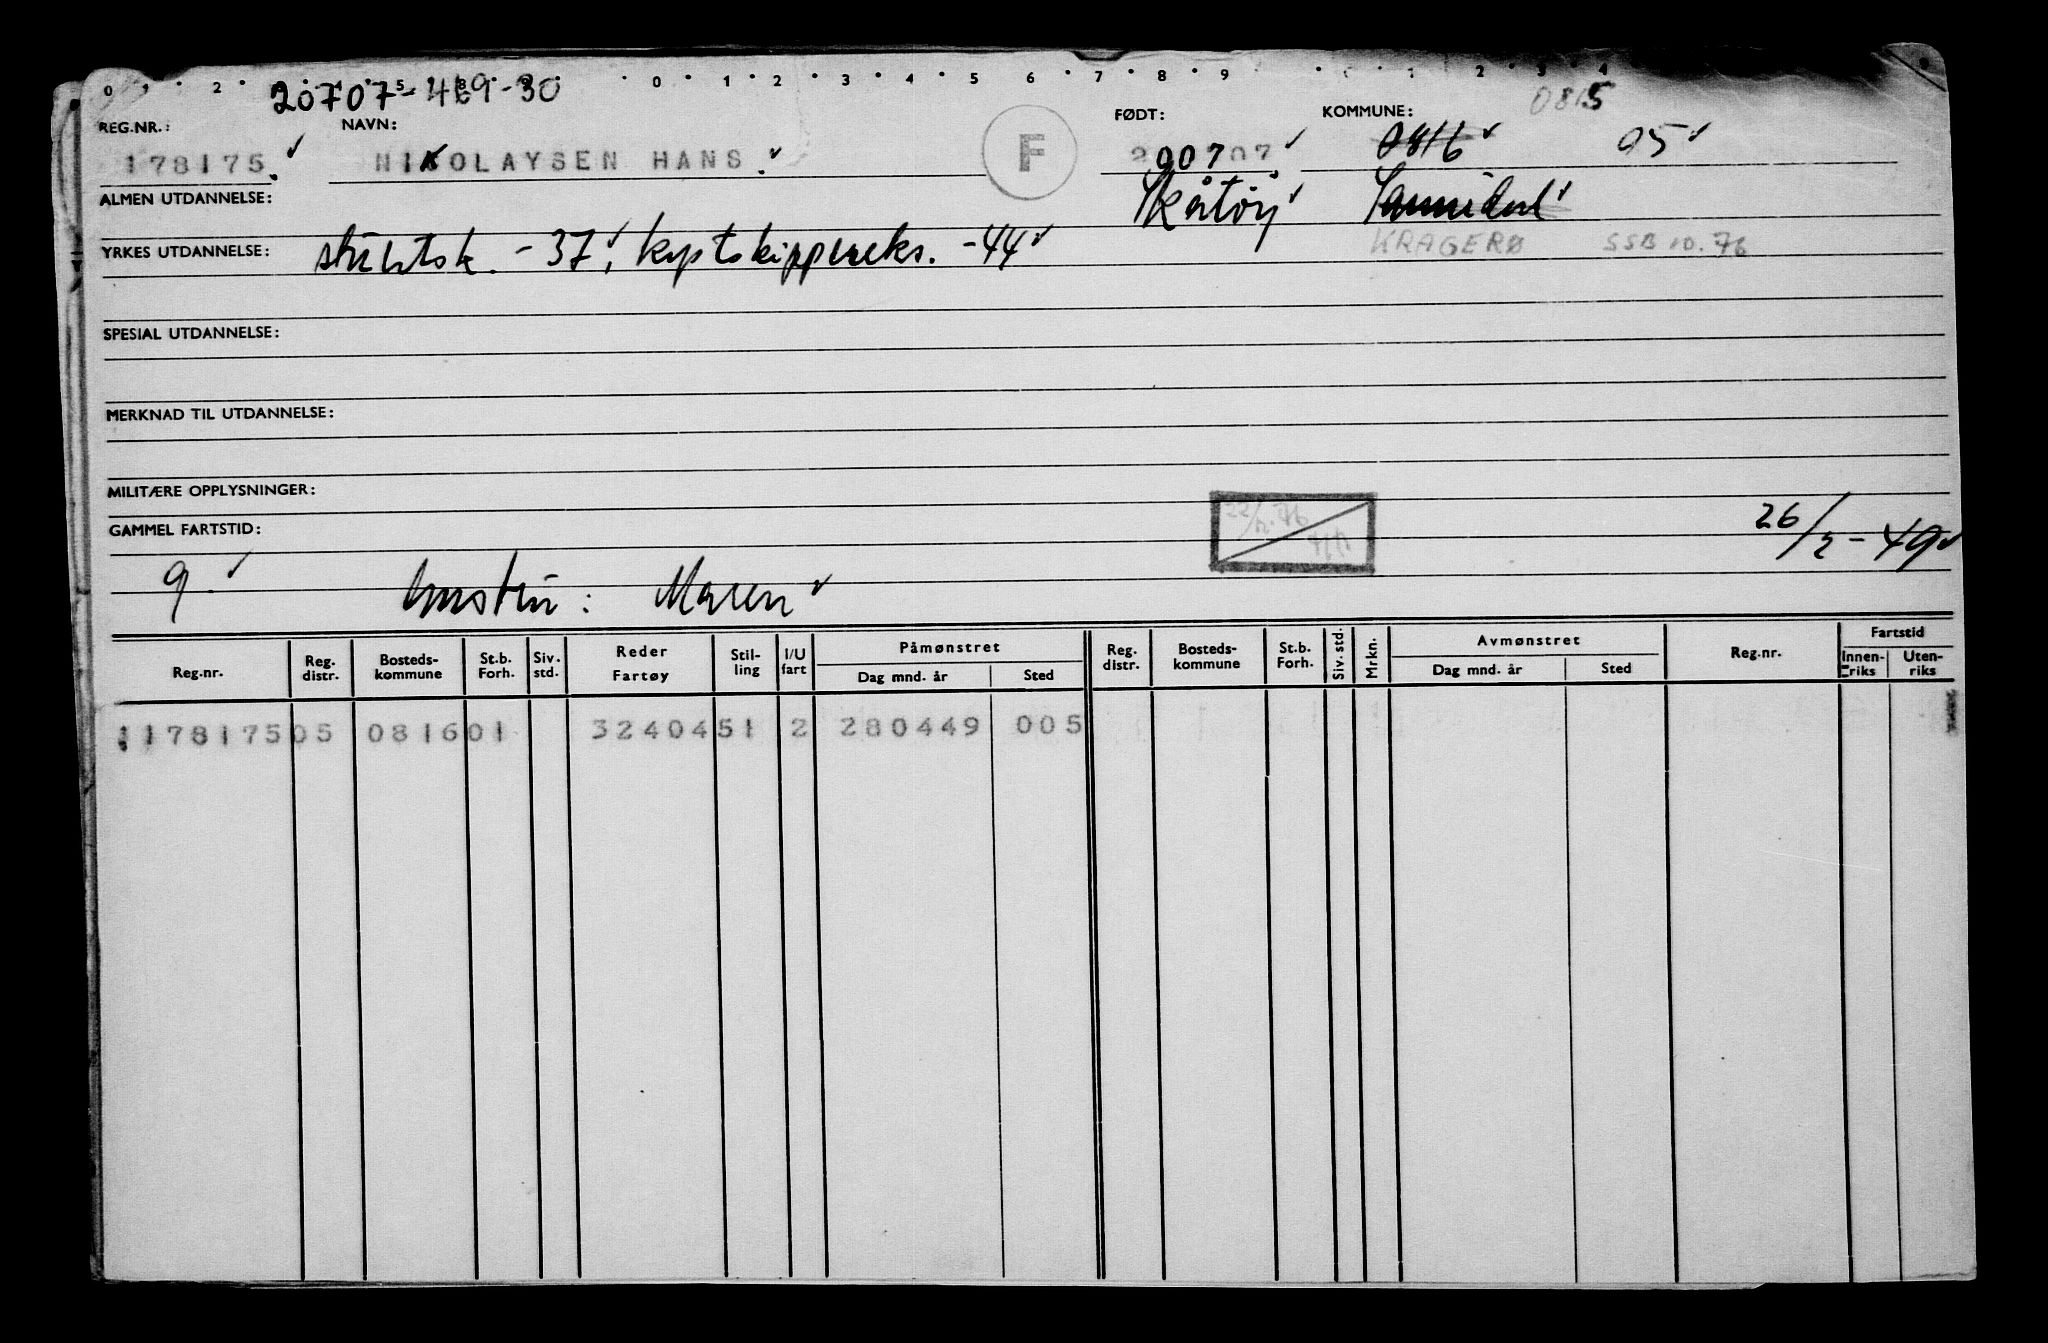 0 1 2 5 8 9 0 1 2 3 4 5 6 7 8 9 1 2 3 4
20707-469-30 0815
REG.NR.: NAVN: FØDT: KOMMUNE:
178175 NIKOLAYSEN HANS. F 200707 0816 05
ALMEN UTDANNELSE: Skåtøy Sannidal
YRKES UTDANNELSE: -37, kystskippereks. -44 KRAGERØ SSB 10.76
SPESIAL UTDANNELSE:
MERKNAD TIL UTDANNELSE:
MILITÆRE OPPLYSNINGER: 26/2-49
GAMMEL FARTSTID:
9. hustru: Maren
Reg.nr. Reg. distr. Bosteds-kommune St.b. Forh. Siv. std. Reder Fartøy Stil-ling I/U fart Påmønstret Dag mnd. år Sted Reg. distr. Bosteds-kommune St.b. Forh. Siv. std. Mrkn. Avmønstret Dag mnd. år Sted Reg.nr. Fartstid Innen-riks Uten-riks
117817505 081601 3240451 2 280449 005